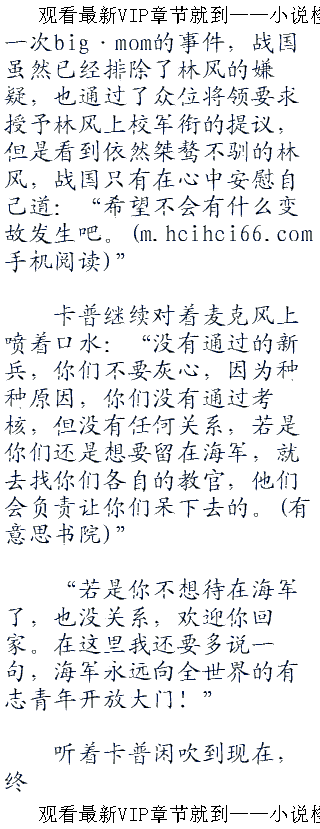 观看最新VIP章节就到——小说检
一次big·mom的事件，战国
虽然已经排除了林风的嫌
疑，也通过了众位将领要求
授予林风上校军衔的提议，
但是看到依然桀骜不驯的林
风，战国只有在心中安慰自
己道：“希望不会有什么变
故发生吧。(m.hcihci66.com
手机阅读)”
卡普继续对着麦克风上
喷着口水：“没有通过的新
兵，你们不要灰心，因为种
种原因，你们没有通过考
核，但没有任何关系，若是
你们还是想要留在海军，就
去找你们各自的教官，他们
会负责让你们呆下去的。(有
意思书院)”
“若是你不想待在海军
了，也没关系，欢迎你回
家。在这里我还要多说一
句，海军永远向全世界的有
志青年开放大门！”
听着卡普闲吹到现在，
终
观看最新VIP章节就到——小说检